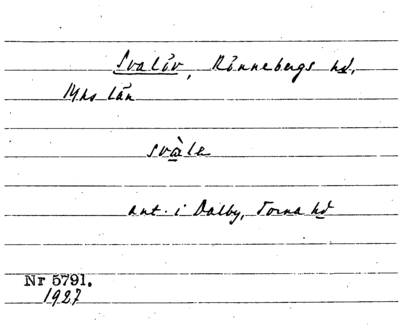 Svalöv, Rönnebergs hd,
Mhs län
svåle
ant. i Dalby, Torna hd
Nr 5791.
1927